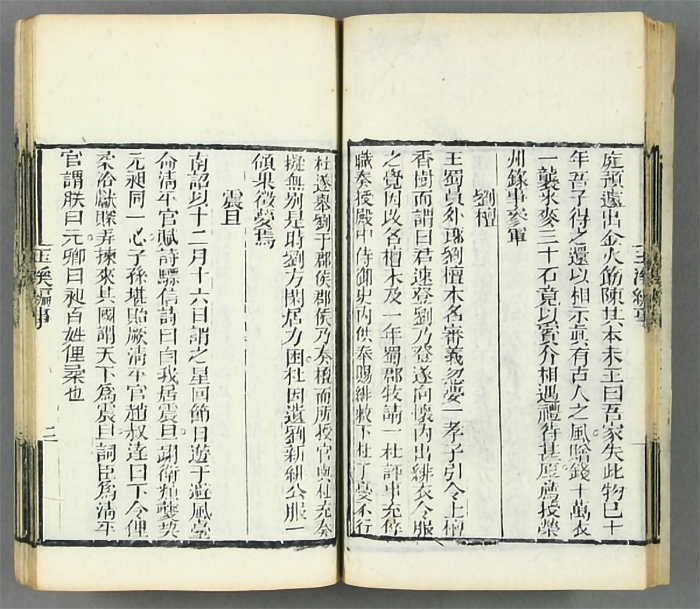 庭頑還出金火筯陳其本末王曰吾家失此物已十
年吾子得之還以相示真有古人之風賜錢十萬衣
一襲米麥三十石竟以賓介相遇禮待甚厚薦授榮
州錄事參軍
劉檀
王蜀員外郎劉檀本名審義忽夢一孝子引令上檀
香樹而謂曰君速登劉乃登遂向懷內出緋衣令服
之覺因改名檀未及一年蜀郡牧請一杜評事充倅
職奏授殿中侍御史內供奉賜緋敕下杜丁憂不行
杜遂舉劉于郡侯郡侯乃奏檀而所授官與杜充奏
擬無別是時劉方閑居力困杜因遺劉新緋公服一
領果徵夢焉
震旦
南詔以十二月十六日謂之星回節日遊于避風臺
命淸平官賦詩驃信詩曰自我居震旦翊衛類夔契
元昶同一心子孫堪貽厥淸平官趙叔達曰下令俚
柔洽獻賝弄揀來其國謂天下爲震旦詞臣爲淸平
官謂朕曰元卿曰昶百姓俚柔也
玉溪編事
二